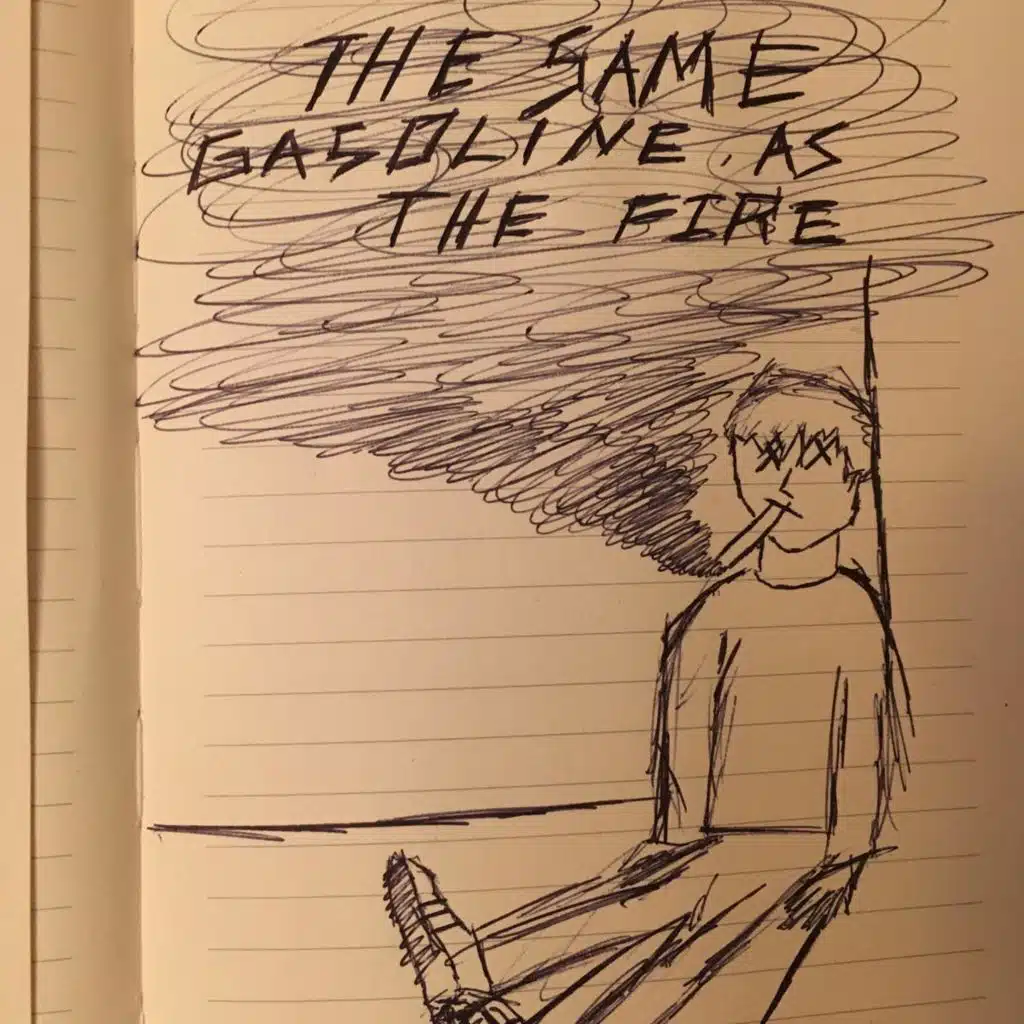 THE SAME
GASOLINE. AS
THE FIRE